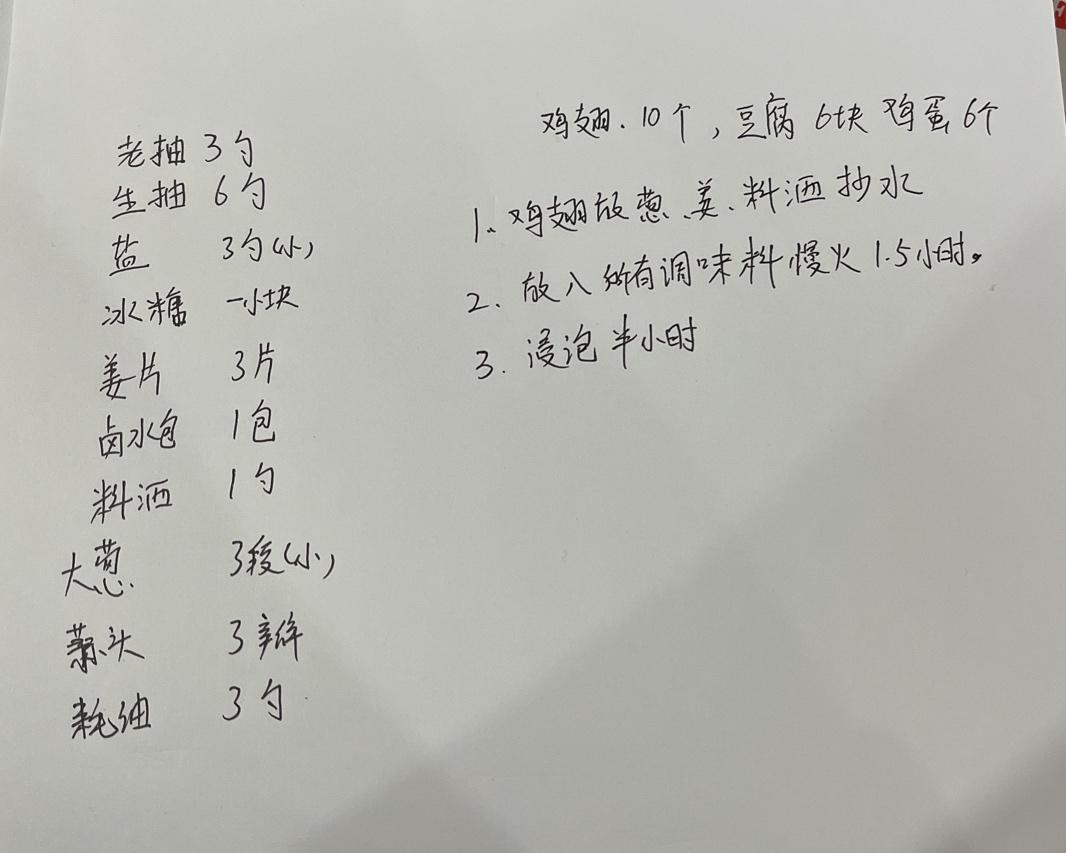 老抽 3勺
生抽 6勺
盐 3勺(小)
冰糖 一小块
姜片 3片
卤水包 1包
料酒 1勺
大葱 3段(小)
蒜头 3瓣
耗油 3勺
鸡翅.10个,豆腐 6块 鸡蛋 6个
1、鸡翅放葱、姜、料酒抄水
2. 放入所有调味料慢火1.5小时。
3. 浸泡半小时